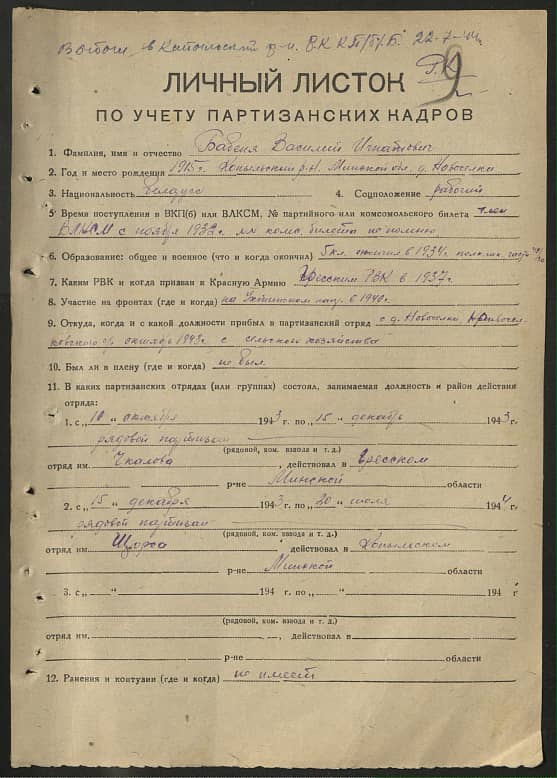 в Копыльский р-н. РК КП/б/Б. 22-7-44
ЛИЧНЫЙ ЛИСТОК
ПО УЧЕТУ ПАРТИЗАНСКИХ КАДРОВ
1. Фамилия, имя и отчество Бабеня Василий Игнатович
2. Год и место рождения 1915г. Копыльский р-н. Минской обл. д. Новоселки
3. Национальность белорус 4. Соцположение рабочий
5 Время поступления в ВКП(б) или ВЛКСМ, № партийного или комсомольского билета член
ВЛКСМ с ноября 1932г. билета не помню
6. Образование: общее и военное (что и когда окончил) 5 кл. в 1934г.
7. Каким РВК и когда призван в Красную Армию Гресским РВК в 1937г.
8. Участие на фронтах (где и когда) на в 1940г.
9. Откуда, когда и с какой должности прибыл в партизанский отряд с д. Новоселки
октябрь 1943г. с сельского хозяйства
10. Был ли в плену (где и когда) не был
11. В каких партизанских отрядах (или группах) состоял, занимаемая должность и район действия
отряда:
1. с „10 “ октября 1943 г. по „15 “ декабрь 1943 г.
рядовой партизан
(рядовой, ком. взвода и т. д.)
отряд им. Чкалова , действовал в Гресском
р-не Минской области
2. с „15 “ декабря 1943 г. по „20 “ июля 1944 г.
рядовой партизан
(рядовой, ком. взвода и т. д.)
отряд им. Щорса действовал в Копыльском
р-не Минской области
3. с „ “ 194 г. по „ “ 194 г
(рядовой, ком. взвода и т. д.)
отряд им. , действовал в
р-не области
12. Ранения и контузии (где и когда) не имеет